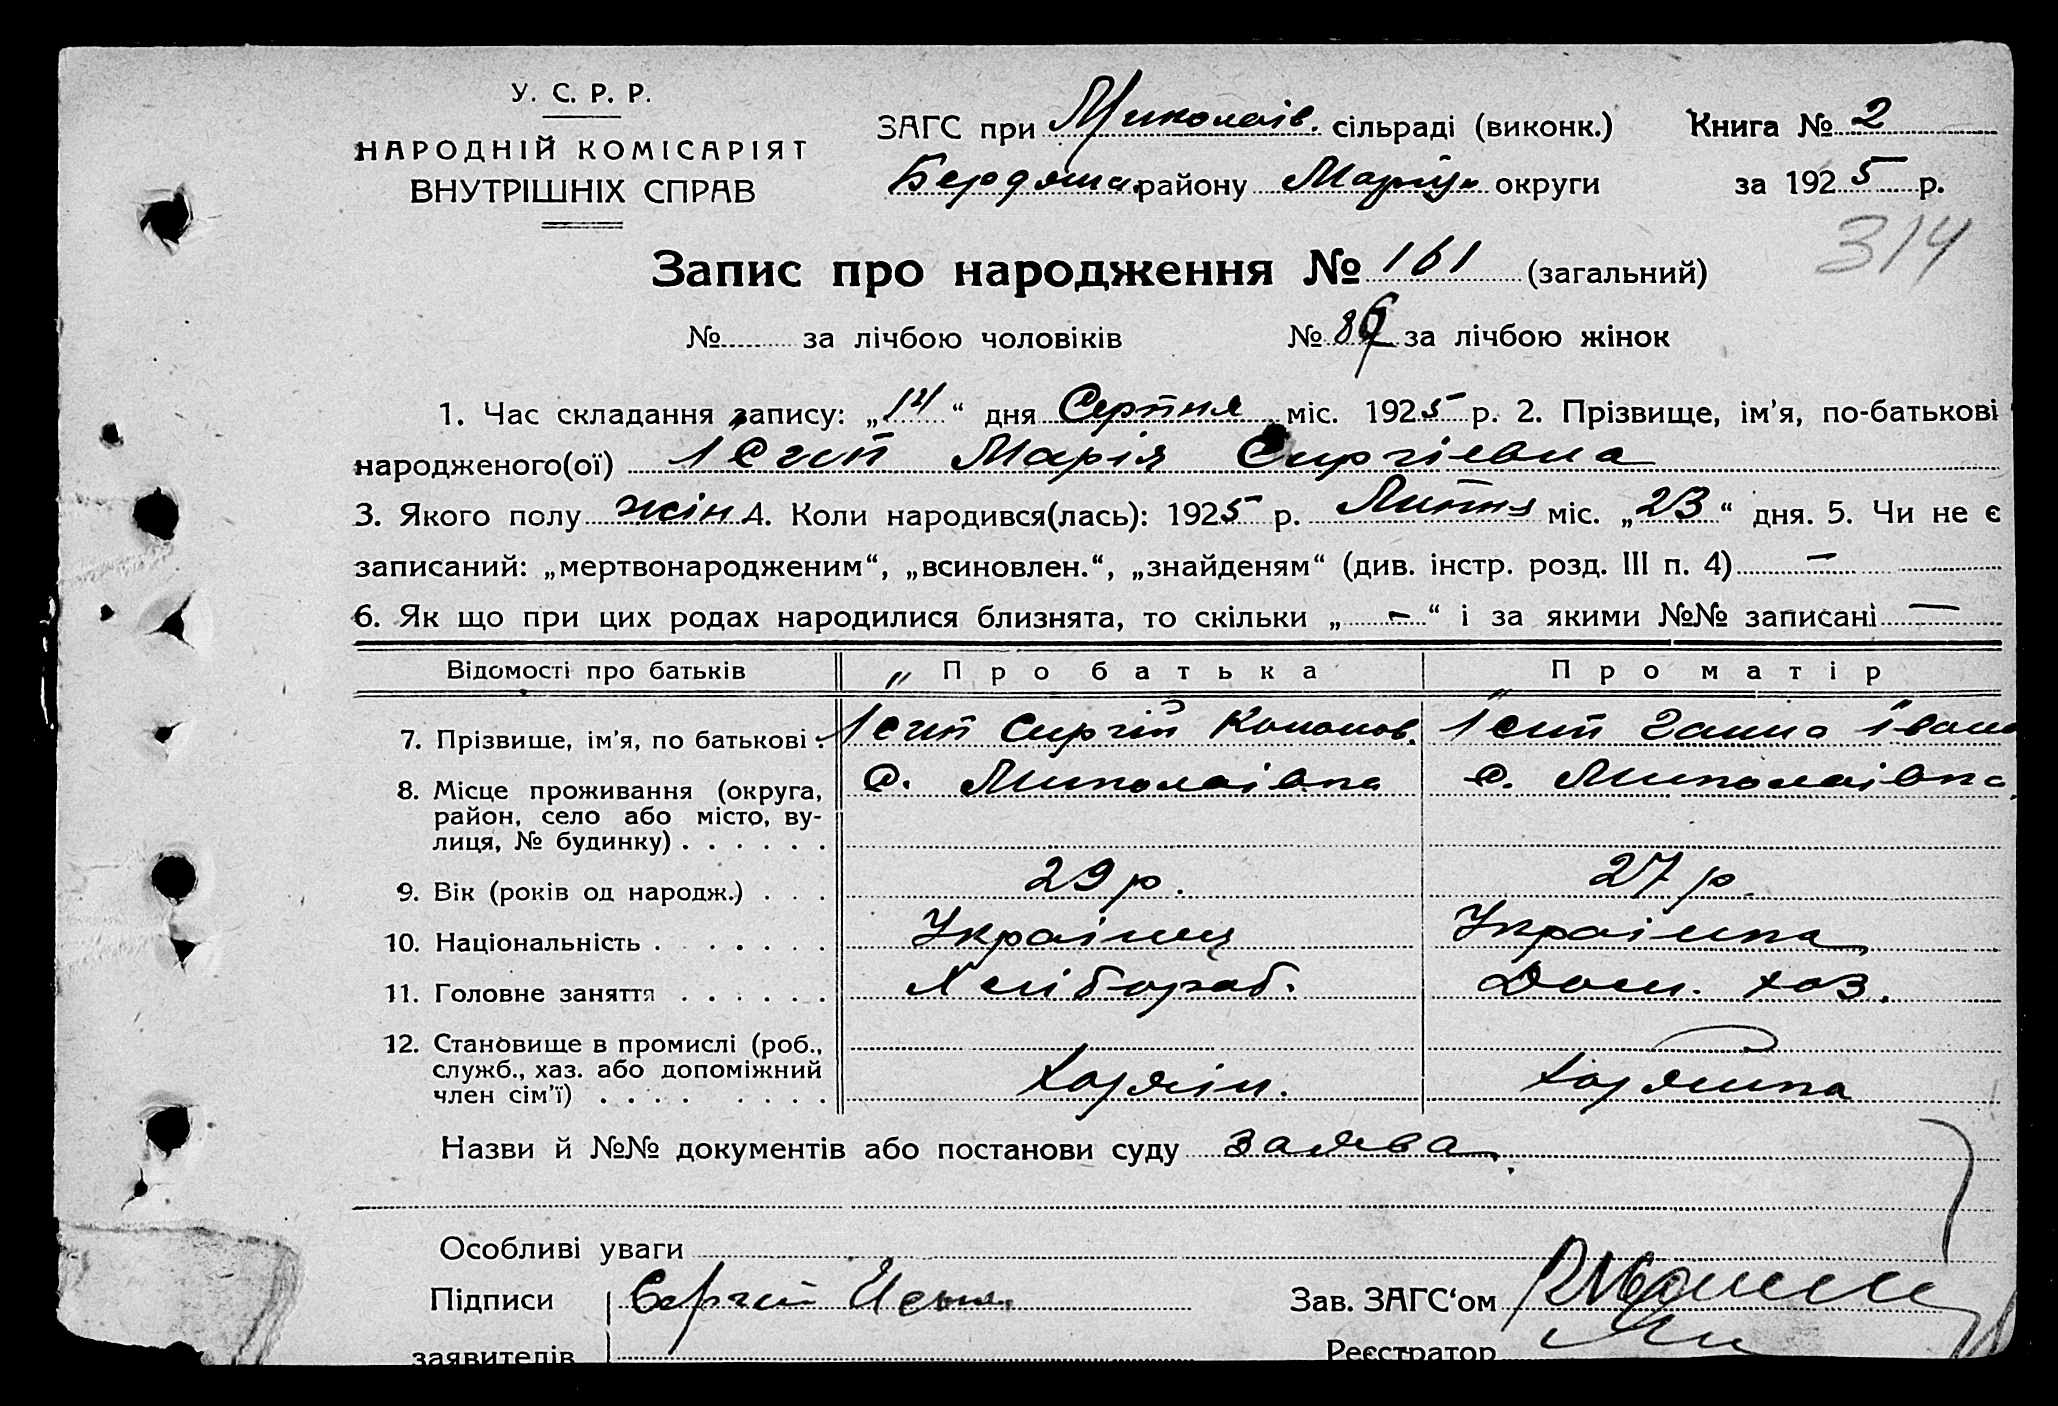 У. С. Р. Р.
НАРОДНІЙ КОМІСАРІЯТ
ВНУТРІШНІХ СПРАВ
ЗАГС при Миколаїв. сільраді (виконк.) Книга № 2
Бердянс. району Маріуп округи за 1925 р.
314
Запис про народження № 161 (загальний)
№ за лічбою чоловіків № 89 за лічбою жінок
1. Час складання запису: „14“ дня Серпня міс. 1925 р. 2. Прізвище, ім'я, по-батькові
народженого(ої) Марія Сиргієвна
3. Якого полу жін 4. Коли народився(лась): 1925 р. Липня міс. „23“ дня. 5. Чи не є
записаний: „мертвонародженим“, „всиновлен.“, „знайденям“ (див. інстр. розд. III п. 4) —
6. Як що при цих родах народилися близнята, то скільки „ - “ і за якими №№ записані —
Відомості про батьків " Про батька Про матір
7. Прізвище, ім'я, по батькові . Сиргій Кононов. Ганна Івано
8. Місце проживання (округа, с. Миколаївка с. Миколаївка
район, село або місто, ву-
лиця, № будинку) . . . . . .
9. Вік (років од народж.) . . . 29 р. 27 р.
10. Національність . . . . . . Українц Українка
11. Головне заняття . . . . . . Хлібороб. Дом. хаз.
12. Становище в промислі (роб.,
служб., хаз. або допоміжний Хазяїн. Хазяйка
член сім'ї) . . . . . . . .
Назви й №№ документів або постанови суду заява
Особливі уваги
Підписи Сергій Зав. ЗАГС'ом
заявителів Реєстратор